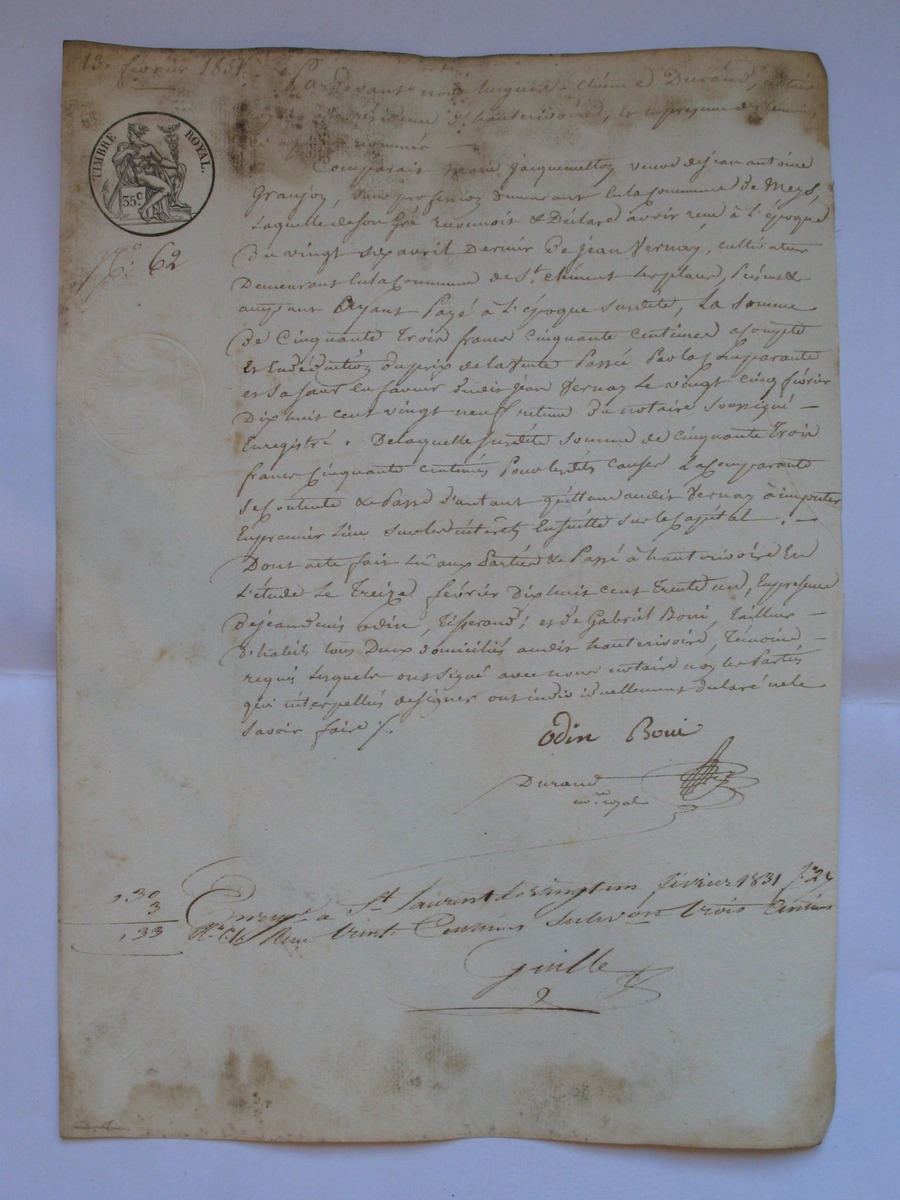 13. février 1831
Pardevant nous hugues Clément Durand, notaire
royal à la résidence d'hauterivoire, et en présence des témoins
après nommés
TIMBRE ROYAL.
35c
No. 62
Comparait Marie Jacquemetton veuve de jean antoine
Granjon, sans profession demeurant en la commune de Meys,
Laquelle de son Gré reconnoit & Déclare avoir reçu à L'époque
Du vingt six avril Dernier de jean Vernay, cultivateur
Demeurant en la commune de St. Clément les places, présent &
acceptant Ayant Payé à L'époque susdite, La somme
De Cinquante Trois francs Cinquante centimes acompte
et en déduction du prix de la vente Passée Par la Comparante
et sa sœur en faveur dudit jean Vernay Le vingt cinq février
Dix huit cent vingt neuf retenue du notaire soussigné
Enregistré. De laquelle susdite somme de cinquante Trois
francs Cinquante centimes Pour lesdites causes La Comparante
Se Contente & Passe d'autant quittance audit Vernay à imputer
En premier Lieu sur les intérêts Ensuitte sur le Capital. –
Dont acte fait Lu aux Parties & Passé à hauterivoire En
L'étude Le Treize février Dix huit cent Trente un, En présence
De jean denis odin, Tisserand; et de Gabriel Boni, Tailleur
d'habits tous Deux domiciliés audit hauterivoire, Témoins
requis Lesquels ont signé avec nous notaire non les Parties
qui interpellés de signer ont individuellement déclaré ne le
savoir faire /.
odin Boni
Durand
nre. royal
,30
3
,33
Enregé à St Laurent le vingt un février 1831 f. 32
Reçu trente Centimes Subvon trois Centimes
Guille